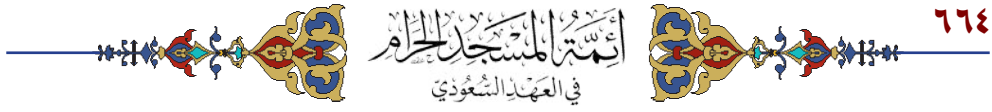 ٦٦٤
أَئِمَّةُ المَسْجِدِ الحَرَامِ
فِي العَهْدِ السُّعُودِيّ